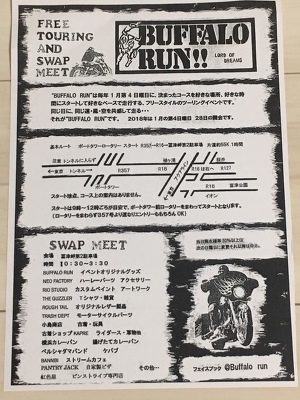 FREE
TOURING
AND
SWAP
MEET
BUFFALO
RUN!!
LORD OF
DREAMS
"BUFFALO RUN"は毎年1月第4日曜日に、決まったコースを好きな場所、好きな時
間にスタートして好きなペースで走行する、フリースタイルのツーリングイベントです。
同じ日に、同じ道・風・空を共感して走る・・・
それが"BUFFALO RUN"です。 2018年1月の第4日曜日 28日の開会です。
基本ルート ポートタワーロータリー スタート R357→R16→富津岬第2駐車場 片道約55K 1時間
トンネルに入らず
←東京 トンネル
R357
R16
R16
富津公園
ポートタワー
イオン
スタート地点、コース上の案内はありません。
スタートは9時~12時ごろが目安で、ポートタワー前ロータリーをまわってスタートとなります。
(ロータリーをまわらず357号より遅なりエントリーももちろんOK)
SWAP MEET
会場 富津岬第2駐車場
時間 10:30~3:30
BUFFALO RUN イベントオリジナルグッズ
NEO FACTORY ハーレーパーツ アクセサリー
RIO STUDIO カスタムペイント アートワーク
THE GUZZLER Tシャツ・雑貨
ROUGH TAIL オリジナルレザー部品
TRASH DEPT モーターサイクルパーツ
小島商店 古着・玩具
古着ショップ KAPRE ライダース・軍物他
横浜カレーパン 揚げたてカレーパン
ペルシャダマバンド ケバブ
BANMIN ストリームカフェ
PANTRY JACK 自家製チリドッグ その他…
紅色屋 ピンストライプ専門店
当日降水確率50%以上は
次の日曜日に変更
フェイスブック @Buffalo run